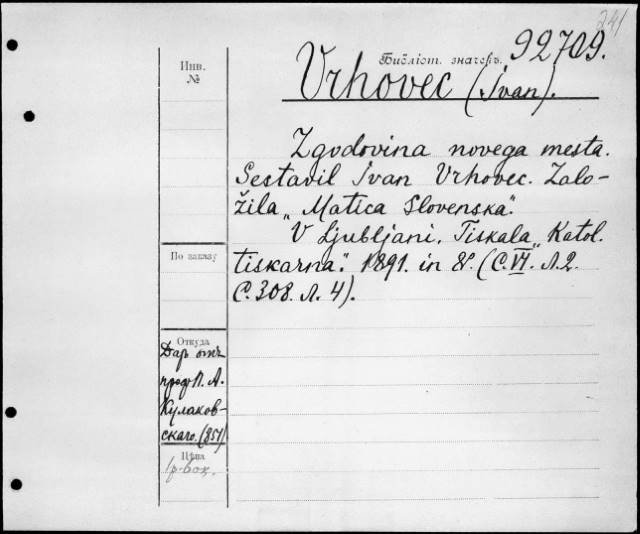 241
Библіот. значекъ. 92709.
Vrhovec (Ivan).
Инв.
№
Zgodovina novega mesta.
Sestavil Ivan Vrhovec. Zalo-
žila „Matica Slovenska“.
V Ljubljani. Tiskala „Katol.
tiskarna“. 1891. in 8°. (С. VI. Л. 2.
С. 308. Л. 4).
По заказу
Откуда
Даръ отъ
проф. П. А.
Кулаков-
скаго. (851)
Цѣна